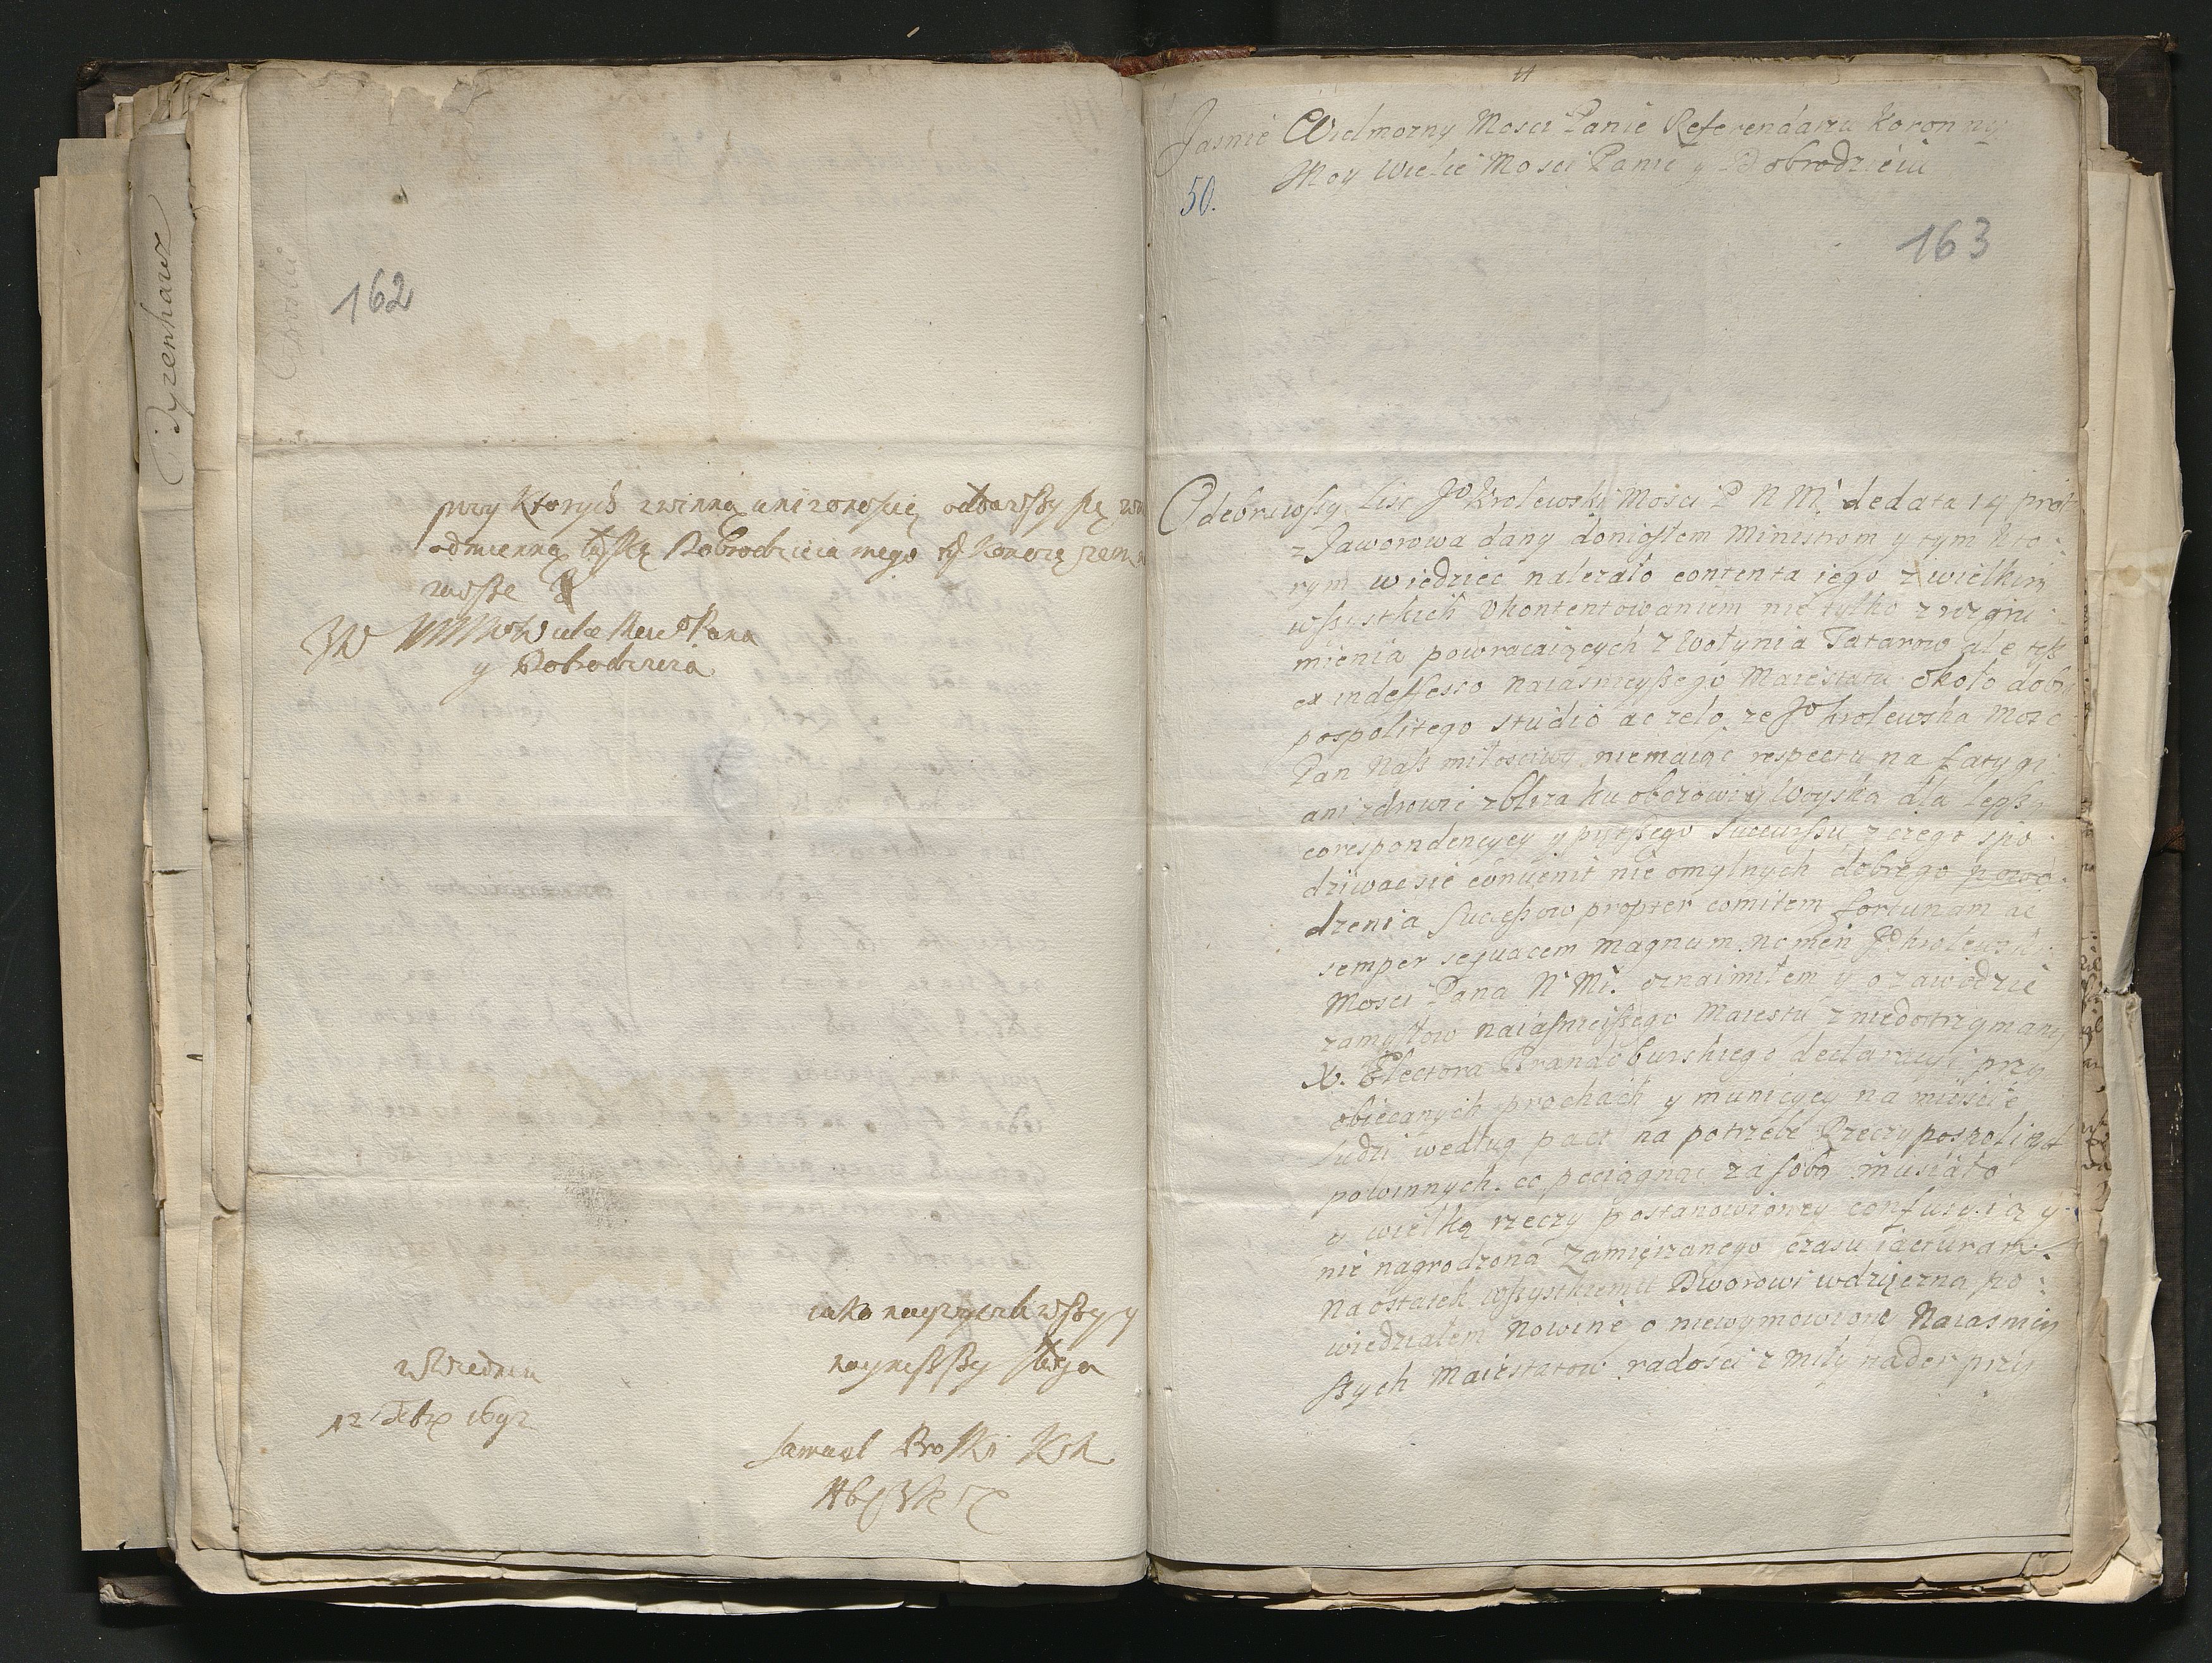 Tyzenhauz
162
przy ktorych z winną unizonoscią oddawszy się w
odmienną łaskę Dobrodzieia mego
zawsze
W Pana
y Dobrodzieia
iako nayzyczliwszy y
nayniszszy sługa
w Wiedniu
12 Febr 1692
Samuel
163
50.
Jasnie Wielmozny Mosci Panie Referendarzu Koronny
Moy Wielie Mosci Panie y Dobrodzieiu
Odebrawszy list Jo Krolewski Mosci P N M. de data 14
z Jaworowa dany doniosłem Ministrom y tym kto-
rym wiedziec nalezało contenta iego z wielkim
wszistkich ukontentowaniem nie tylko z wzgru-
mienia powracaiących z Wołynia Tatarow ale tesz
ex indefesso naiasnieyszego Maiestatu około dobra
pospolitego studio ac zelo, ze Jo krolewska Mosc
Pan Nasz miłosciwy niemaiąc respectu na fatygi
ani zdrowie zbliza ku obozowi y Woyska dla lepszy
corespondencyey y prętszego succursu, z czego spo-
dziwac sie conuenit nie omylnych dobrego powo-
dzenia sucessow propter comitem fortunam ac
semper sequacem magnum nomen Jo krolewski
Mosci Pana N Mi. oznaimiłem y o zawodzie
zamysłow naiasnieiszego Maiestu z niedotrzymany
X. Electora Brandoburskiego declaracyi przy
obiecanych prochach y municyey na mieiscie
ludzi według pact na potrzebe Rzeczypospolitey
powinnych. co pociągnąc za sobą musiało
w wielką rzeczy postanowioney confusyią y
nie nagrodzoną zamięrzonego czasu iacturam.
Na ostatek wszystkiemu Dworowi wdzięczną po-
wiedziałem Nowine o niewymowioney Naiasniey
szych Maiestatow radosci z miły nader przy